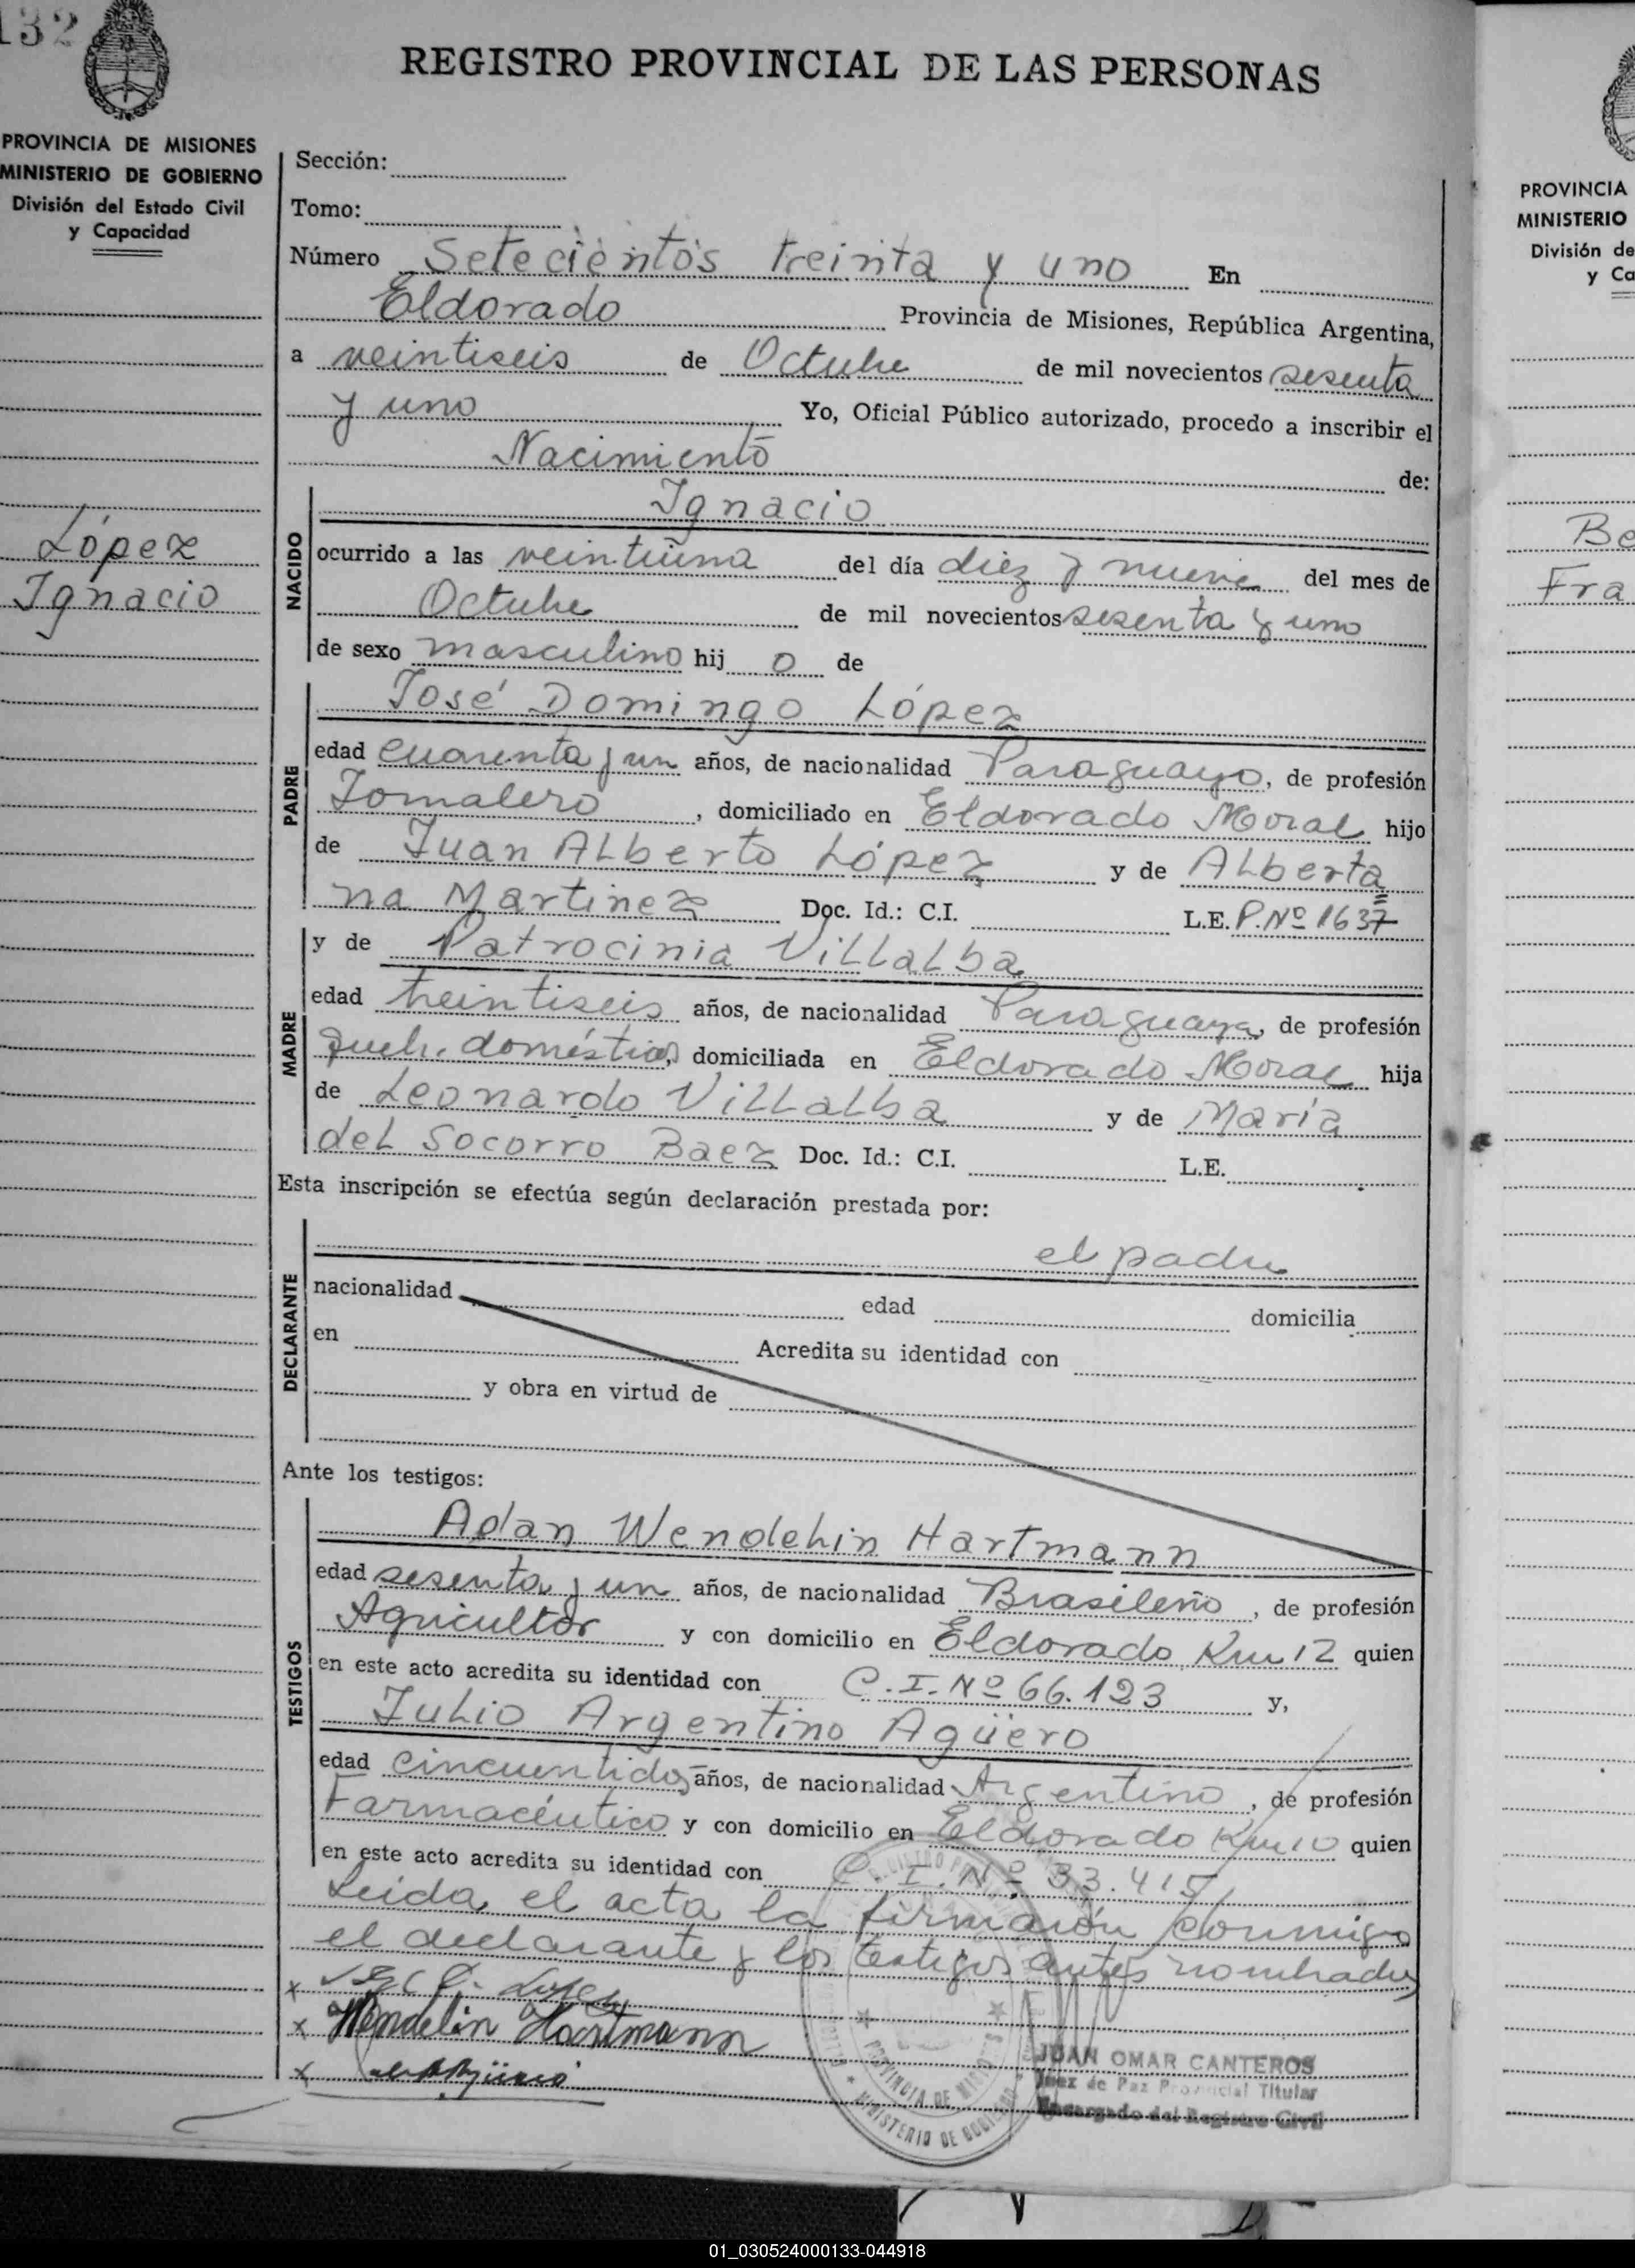 132
REGISTRO PROVINCIAL DE LAS PERSONAS
PROVINCIA DE MISIONES
MINISTERIO DE GOBIERNO
División del Estado Civil
y Capacidad
López
Ignacio
Sección:
Tomo:
Número Setecientos treinta y uno En
Eldorado Provincia de Misiones, República Argentina,
a veintiseis de Octubre de mil novecientos sesenta
y uno Yo, Oficial Público autorizado, procedo a inscribir el
Nacimiento de:
NACIDO
Ignacio
ocurrido a las veintiuna del día diez y nueve del mes de
Octubre de mil novecientos sesenta y uno
de sexo masculino hij o de
PADRE
José Domingo López
edad cuarenta y un años, de nacionalidad Paraguayo, de profesión
Jornalero, domiciliado en Eldorado hijo
de Juan Alberto López y de Alberta
na Martinez Doc. Id.: C.I. L.E. P.Nº 1637
MADRE
y de Patrocinia Villalba
edad treintiseis años, de nacionalidad Paraguaya, de profesión
domésticos, domiciliada en Eldorado hija
de Leonardo Villalba y de María
del Socorro Baez Doc. Id.: C.I. L.E.
Esta inscripción se efectúa según declaración prestada por:
DECLARANTE
el padre
nacionalidad edad domicilia
en Acredita su identidad con
y obra en virtud de
Ante los testigos:
TESTIGOS
Adan Wendelin Hartmann
edad sesenta y un años, de nacionalidad Brasileño, de profesión
Agricultor y con domicilio en Eldorado Km 12 quien
en este acto acredita su identidad con C.I.Nº 66.123 y,
Julio Argentino Agüero
edad cincuentidos años, de nacionalidad Argentino, de profesión
Farmacéutico y con domicilio en Eldorado Km 10 quien
en este acto acredita su identidad con C.I.Nº 33.415
Leida el acta la firmarón conmigo
el declarante y los testigos antes nombrados
x
x Wendelin Hartmann
x Agüero
PROVINCIA DE MISIONES
MINISTERIO DE GOBIERNO
JUAN OMAR CANTEROS
Juez de Paz Provincial Titular
Encargado del Registro Civil
PROVINCIA
MINISTERIO
División de
y Ca
Be
Fra
01_030524000133-044918